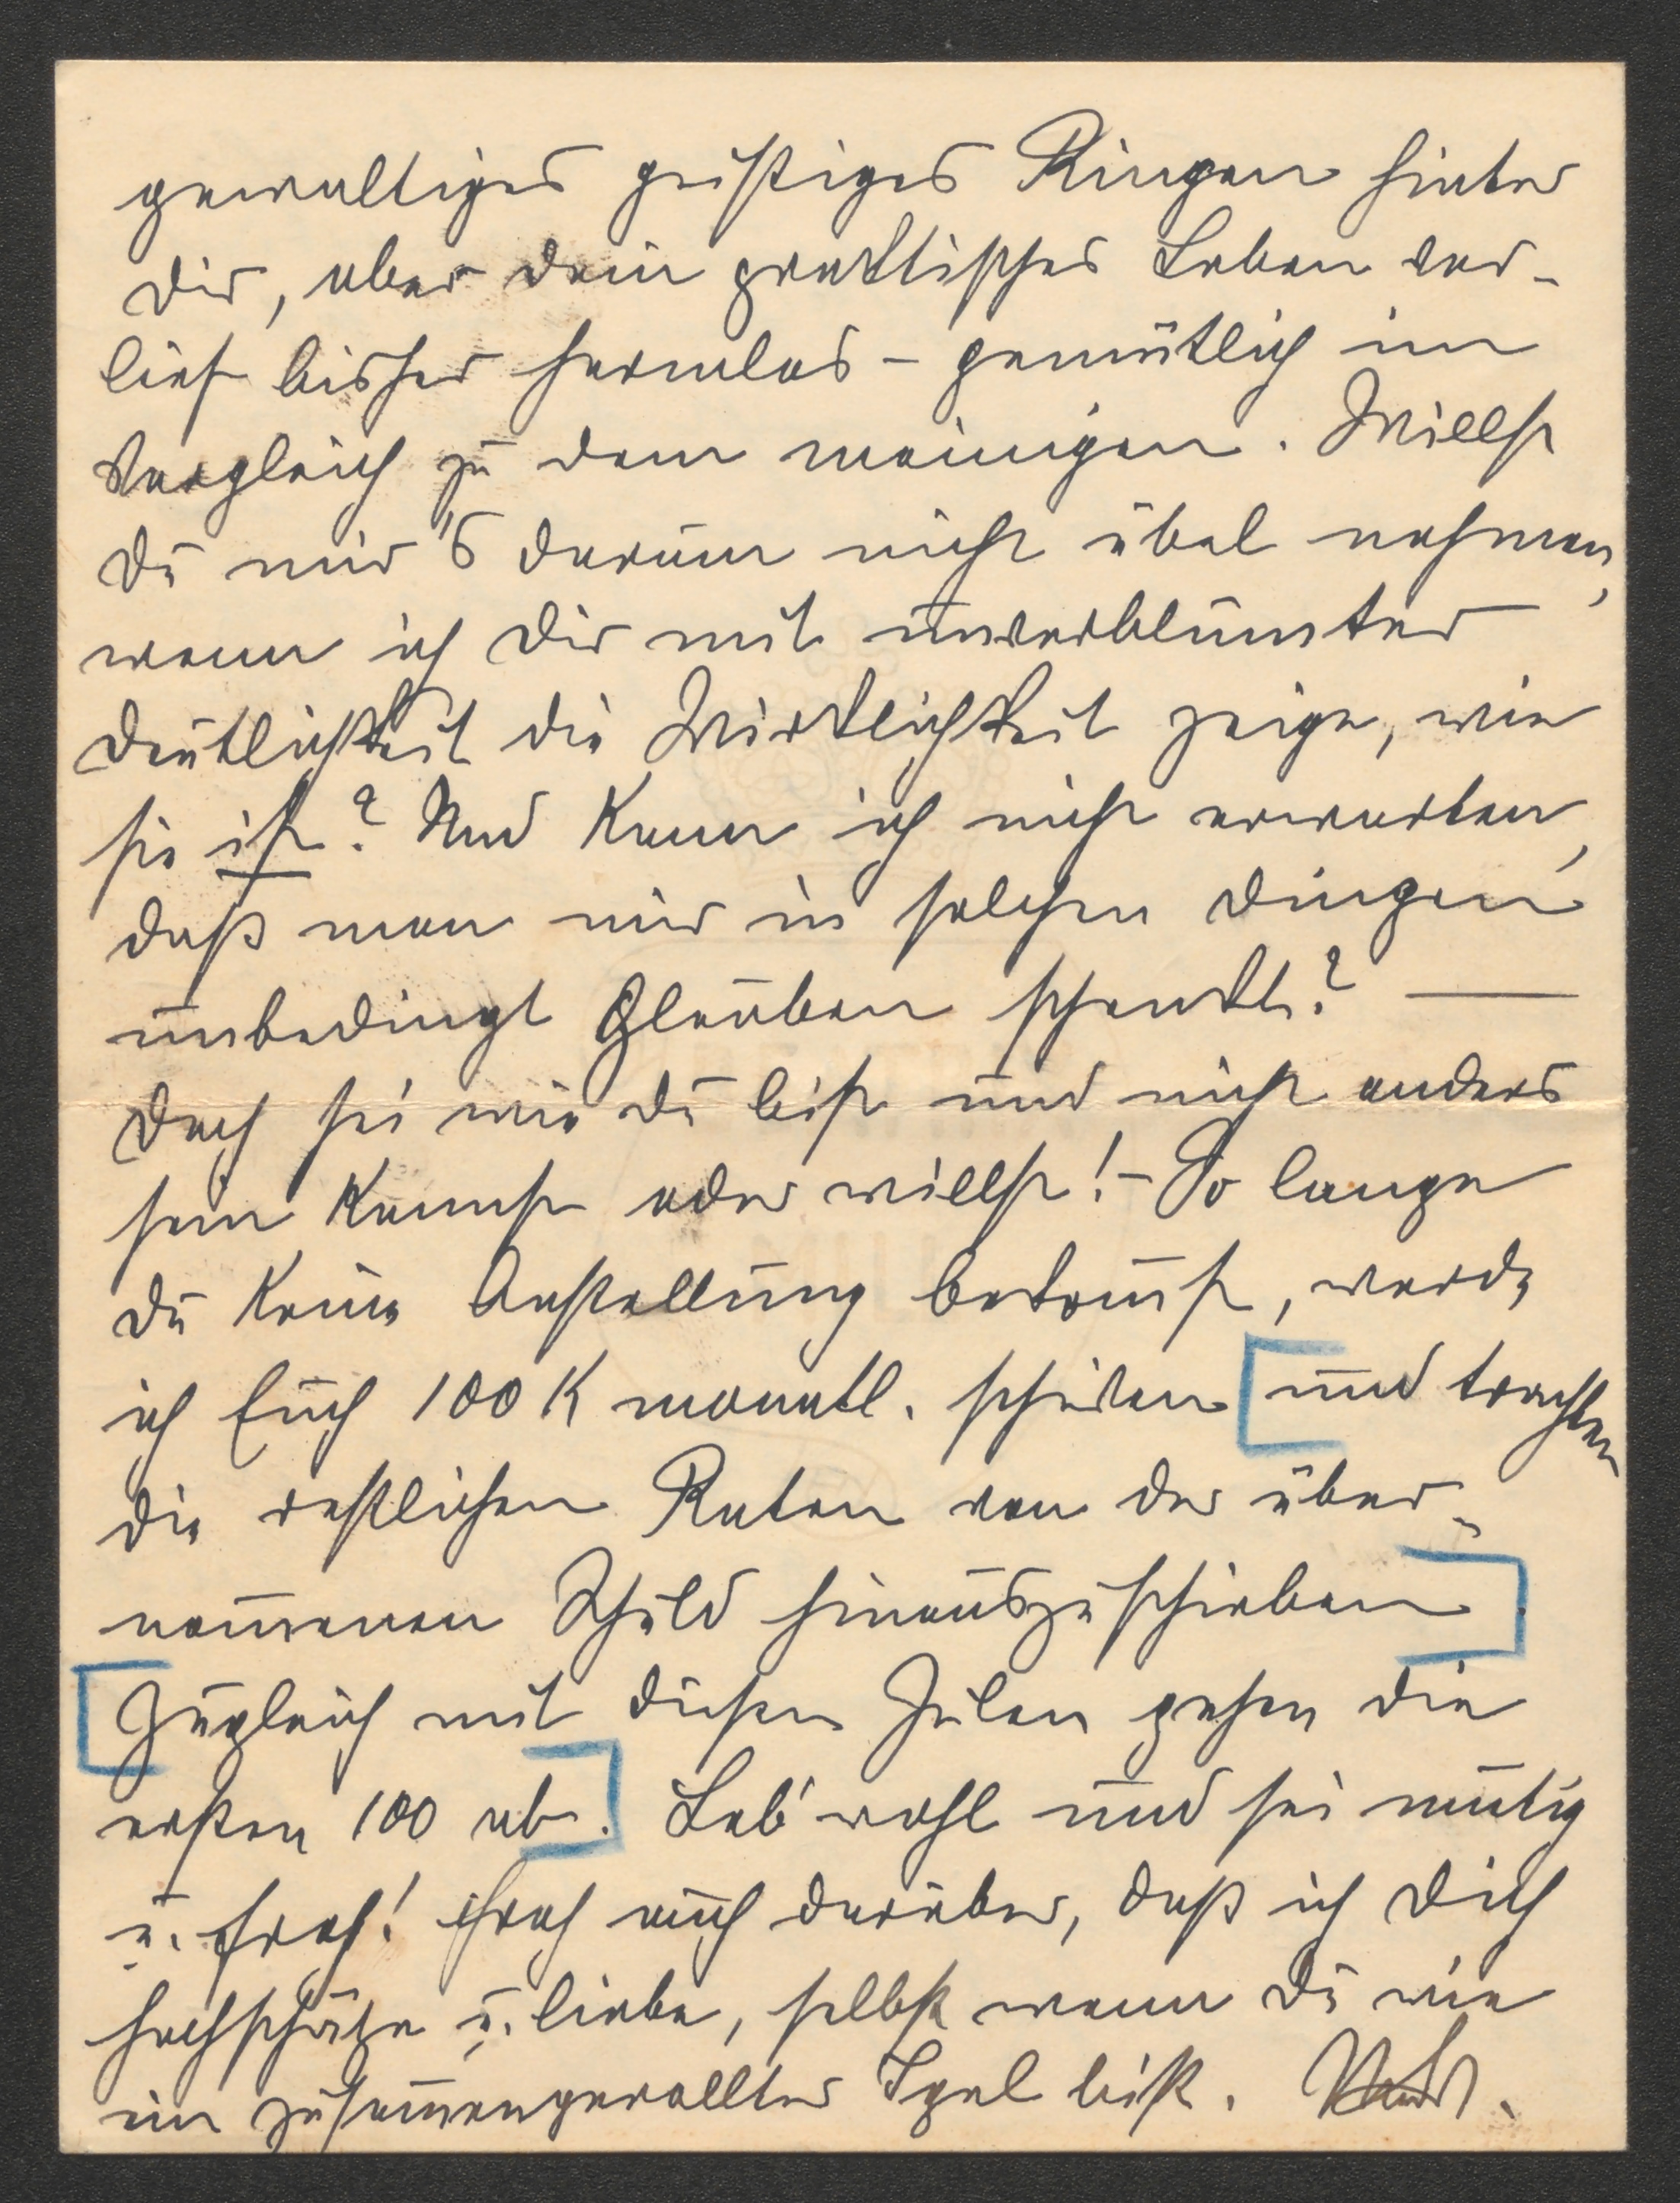 gewaltiges geistiges Ringen hinter
Dir, aber Dein praktisches Leben ver-
lief bisher harmlos - gemütlich im
Vergleich zu dem meinigen. Willst
Du mir's darum nicht übel nehmen,
wenn ich Dir mit unverblümter
Deutlichkeit die Wirklichkeit zeige, wie
sie ist? Und kann ich nicht erwarten,
daß man mir in solchen Dingen
unbedingt Glauben schenkt? —
Doch sei wie Du bist und nicht anders
sein kannst oder willst! - So lange
Du keine Anstellung bekom̄st, werde
ich Euch 100 K monatl. schicken und trachten
die restlichen Raten von der über-
nom̄enen Schuld hinauszuschieben
Zugleich mit diesen Zeilen gehen die
ersten 100 ab. Leb' wohl und sei mutig
u. froh! Froh auch darüber, daß ich Dich
hochschätze u. liebe, selbst wenn Du wie
ein zusam̄engerollter Igel bist.